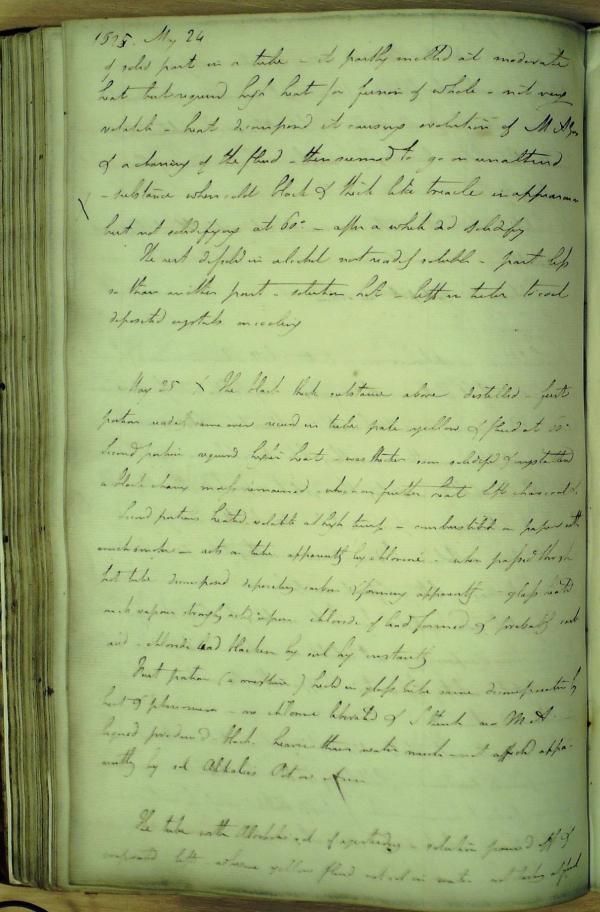 1825. May 24
of solid part in a tube - it partly melted at moderate
heat but required high heat for fusion of whole - not very
volatile - heat decomposed it causing evolution of M A Gas
& a charring of the fluid - then seemed to go on unaltered
- substance when cold black & thick like treacle in appearance
but not solidifying at 60° - after a while did solidify
The rest dissolved in alcohol not readily soluble - part less
so than another part - solution hot - left in tubes to cool
deposited crystals on cooling
May 25 X The black thick substance above distilled - first
portion came over in tube pale yellow & fluid at 60°
Second portion required higher heat - was thicker soon solidified & crystallized
a black mass remained - which on further heat left charcoal
Second portions heated volatile at high temp - combustible on paper with
much smoke - acts on tube apparently by chlorine - when passed through
hot tube decomposed depositing carbon & forming apparently - glass heated
in vapour strongly acted upon chloride of lead formed & probably
acid - chloride lead blacken by sul hy instantly
First portion ( ) held in glass tube same decomposition by
heat & phenomena - no chlorine liberated & I think no M A
liquid produced black heavier than water much - not affected appa-
rently by sol Alkalies Pot or Am
The tube with Alcoholic sol of yesterday - solution poured off &
left yellow fluid not sol in water